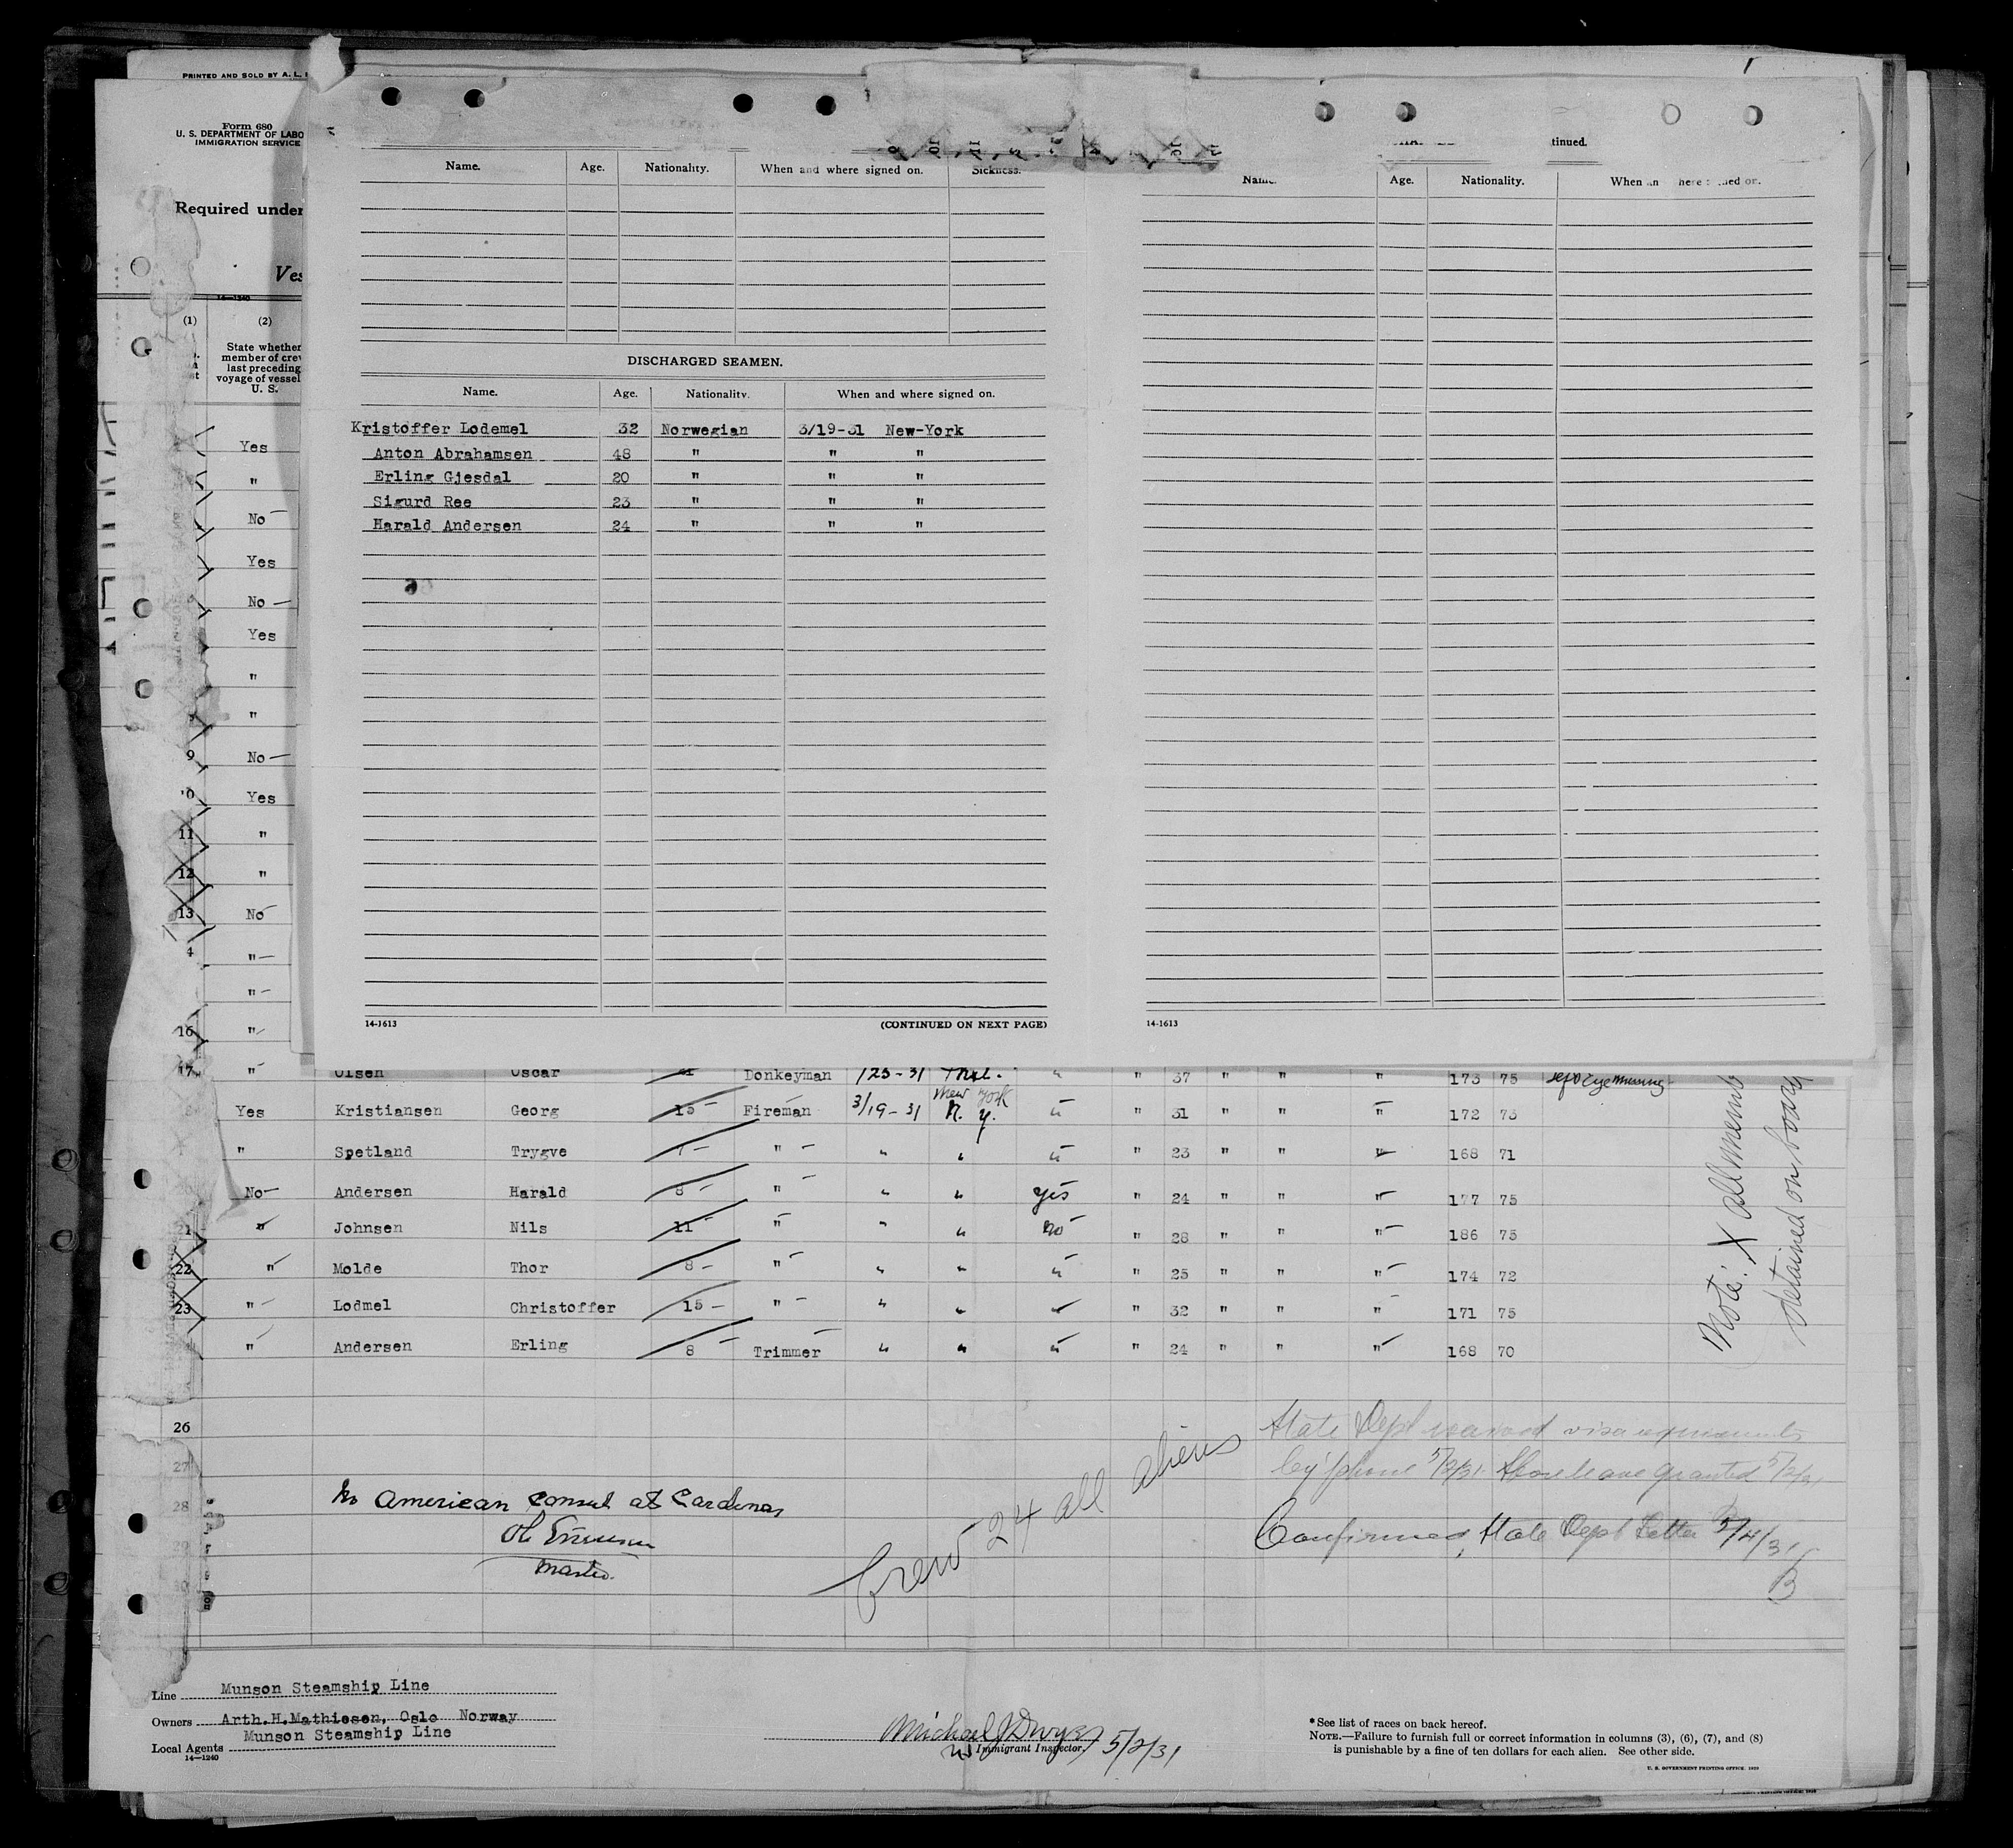 PRINTED AND SOLD BY A. L.
Form 680
U. S. DEPARTMENT OF LABO
IMMIGRATION SERVICE
Required under
Ves
14—1240
(1) (2)
State whether
member of crew
last preceding
voyage of vessel
U. S.
Name. Age. Nationality. When and where signed on. Sickness.
tinued.
Name. Age. Nationality. When an here ned on.
DISCHARGED SEAMEN.
Name. Age. Nationality. When and where signed on.
Kristoffer Lodemel 32 Norwegian 3/19-31 New-York
Anton Abrahamsen 48 " " "
Erling Gjesdal 20 " " "
Sigurd Ree 23 " " "
Harald Andersen 24 " " "
Yes
"
No
Yes
No
Yes
"
"
9 No
0 Yes
11 "
12 "
13 No
4 "
"
16 "
14-1613 (CONTINUED ON NEXT PAGE) 14-1613
17 " Olsen Oscar Donkeyman /23-31 " 37 " " " 173 75
Yes Kristiansen Georg 15 Fireman 3/19-31 New York N. Y. " " 31 " " " 172 73
" Spetland Trygve 7 " " " " " 23 " " " 168 71
No Andersen Harald 8 " " " yes " 24 " " " 177 75
21 " Johnsen Nils 11 " " " no " 28 " " " 186 75
22 " Molde Thor 8 " " " " " 25 " " " 174 72
23 " Lodmel Christoffer 15 " " " " " 32 " " " 171 75
" Andersen Erling 8 Trimmer " " " " 24 " " " 168 70
Note: X all memb
detained on board
26
27
28
29
30
State Dept waived visa requirements
by phone 5/2/31. Shore leave granted 5/2/31
Confirmed, State Dept Letter 5/4/31
B
No American Consul at Cardenas
Master.
Crew 24 all aliens
Line Munson Steamship Line
Owners Arth.H.Mathiesen, Oslo Norway
Munson Steamship Line
Local Agents
14—1240
Michael J Dwyer 5/2/31
Immigrant Inspector
*See list of races on back hereof.
NOTE.—Failure to furnish full or correct information in columns (3), (6), (7), and (8)
is punishable by a fine of ten dollars for each alien. See other side.
U. S. GOVERNMENT PRINTING OFFICE: 1929